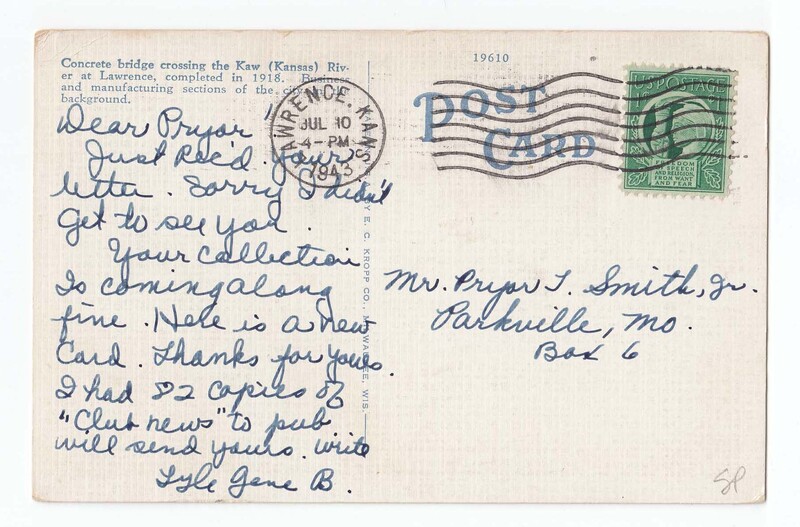 Concrete bridge crossing the Kaw (Kansas) Riv-
er at Lawrence, completed in 1918. Business
and manufacturing sections of the city in
background.
19610
POST
CARD
LAWRENCE, KANS.
JUL 10
4-PM
1943
U.S. POSTAGE
1¢
FREEDOM
OF SPEECH
AND RELIGION,
FROM WANT
AND FEAR
Dear Pryor
Just Rec'd your
letter. Sorry I didn't
Get to see you.
Your Collection
Is coming along
fine. Here is a new
Card. Thanks for yours.
I had 82 copies of
"Club news" to pub
will send yours. write
Lyle Gene B.
E. C. KROPP CO., MILWAUKEE, WIS.
Mr. Pryor T. Smith, Jr.
Parkville, Mo.
Box 6